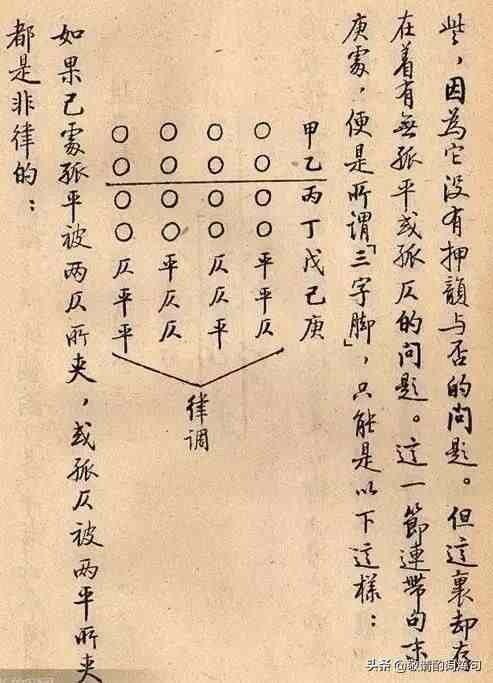 些，因為它没有押韻与否的問題。但這裏却存
在着有無孤平或孤仄的問題。這一節連帶句末
庚處，便是所謂「三字脚」，只能是以下這樣：
甲乙丙丁戊己庚
○○○○平平仄
○○○○仄仄平
○○○○平仄仄
○○○○仄平平
律调
如果己處孤平被两仄所夹，或孤仄被两平所夹
都是非律的：
头条